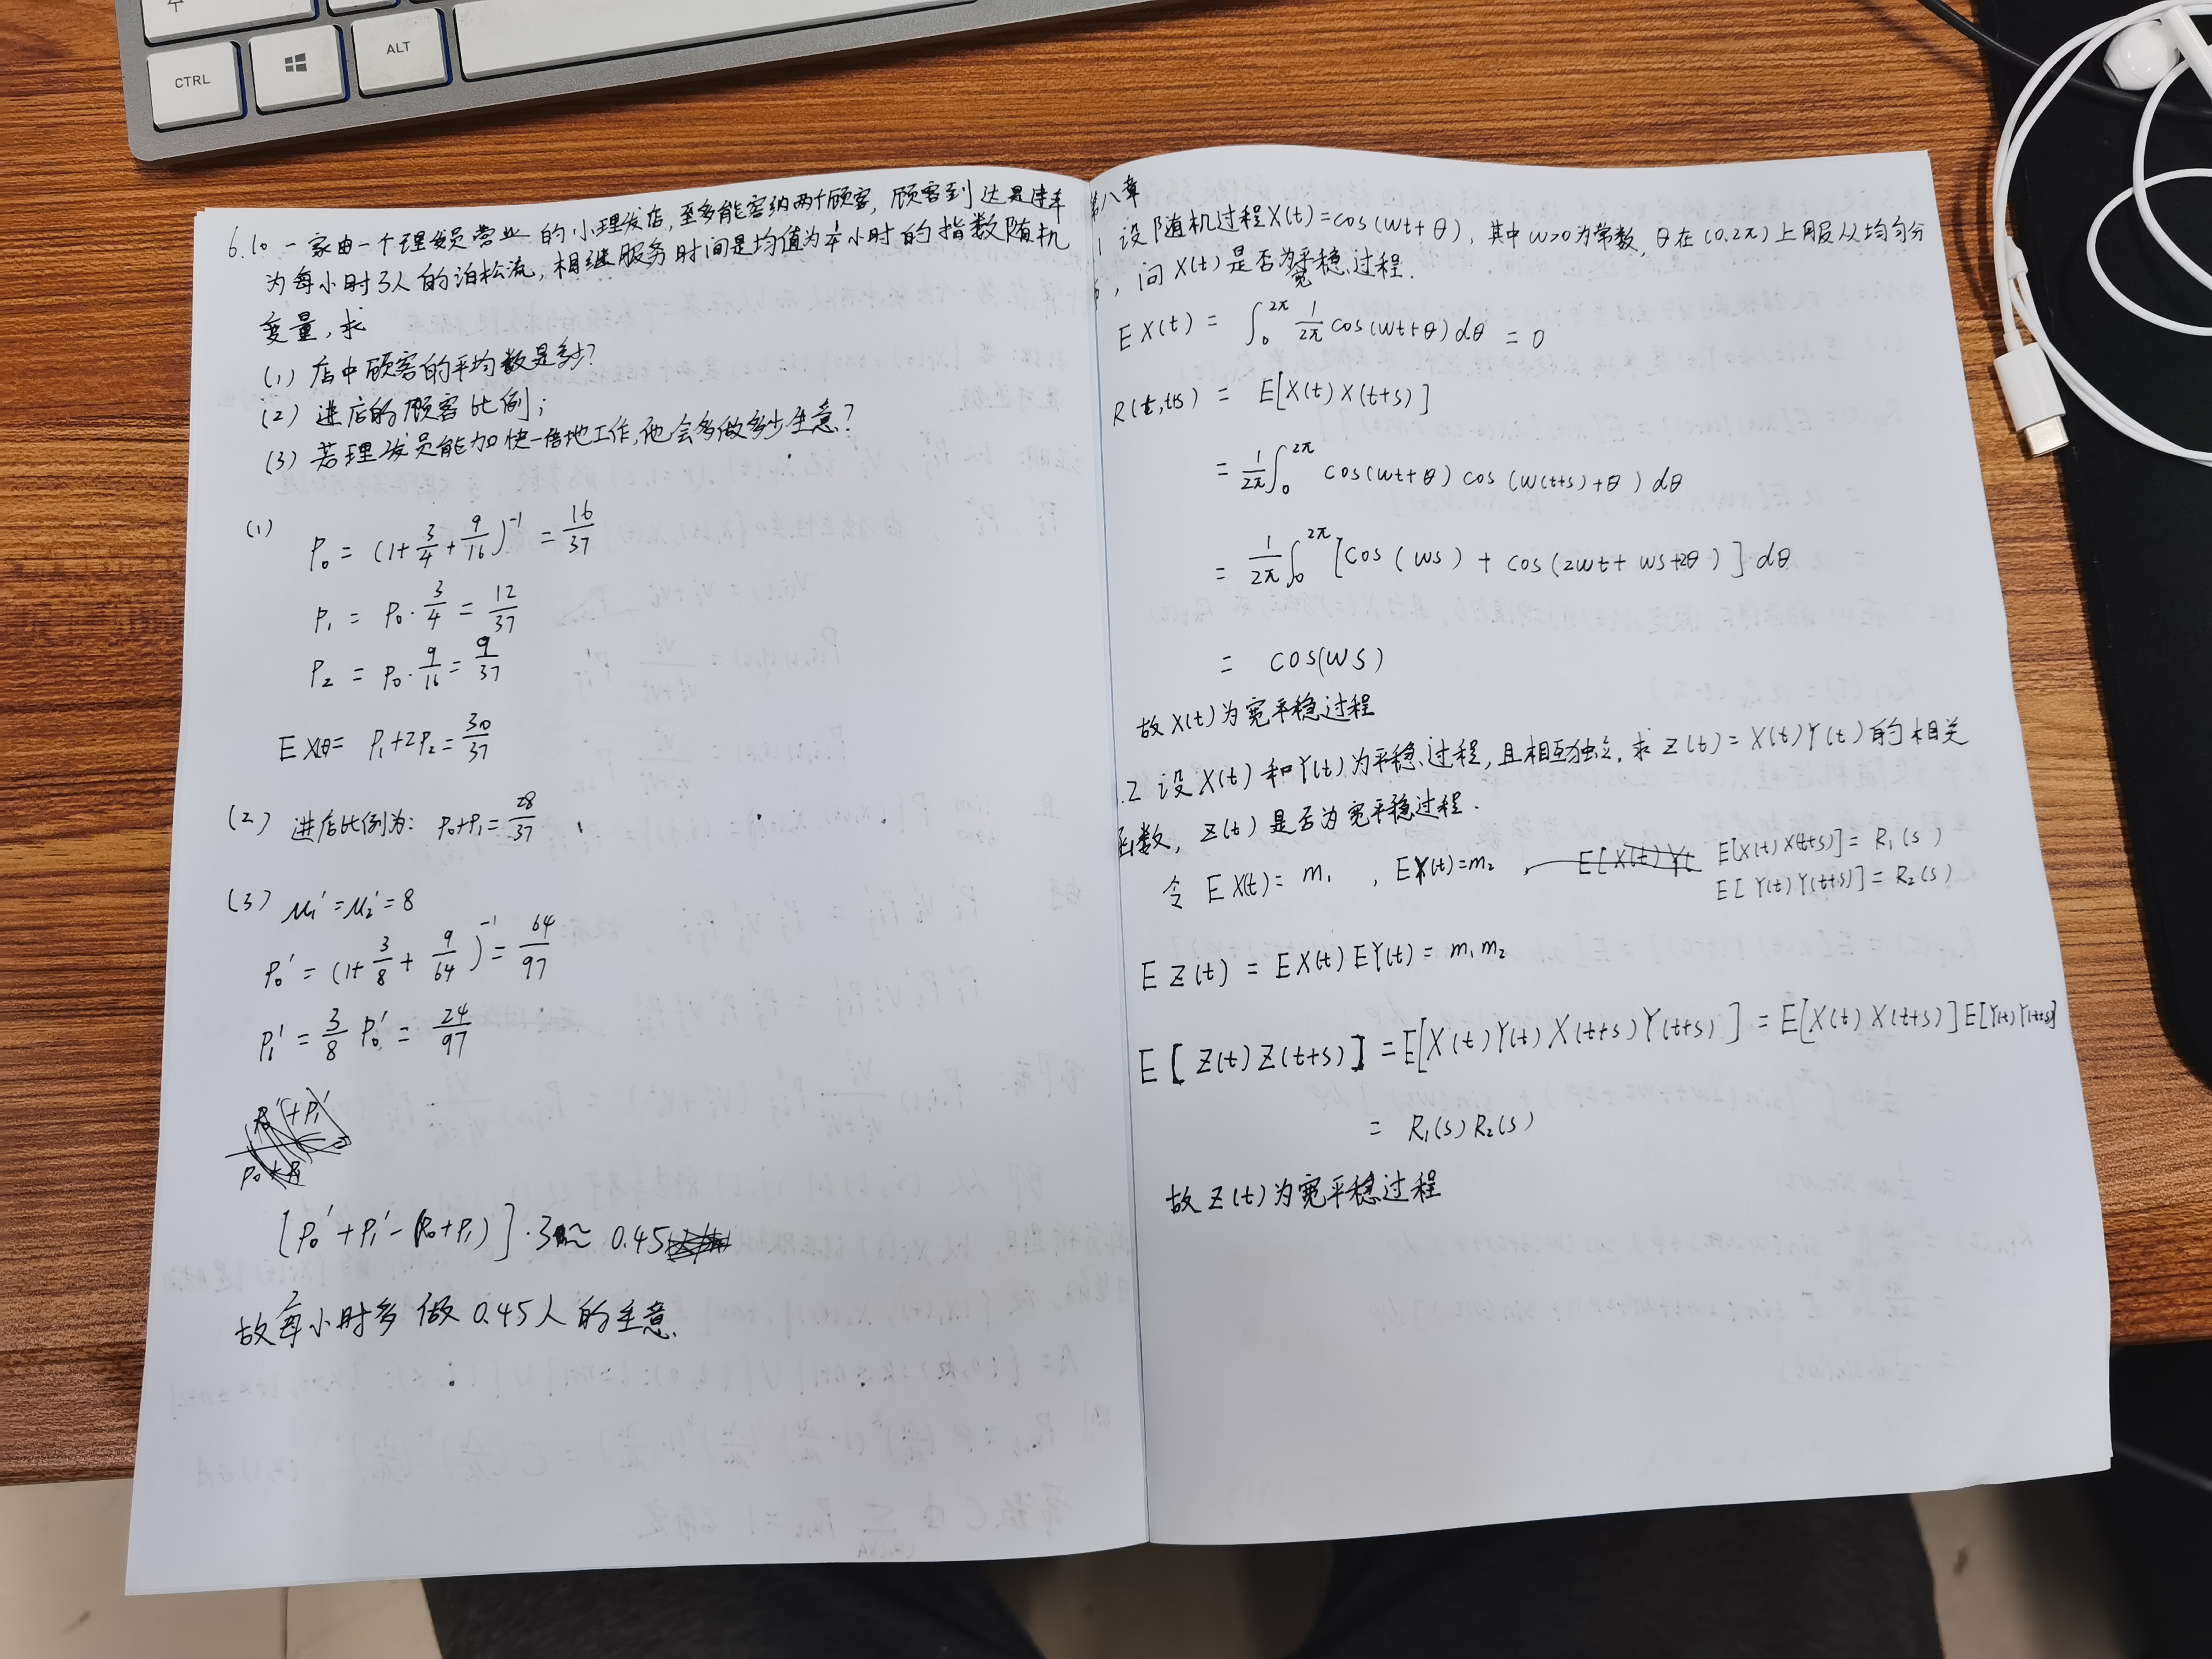 CTRL
ALT
6.10 一家由一个理发员营业的小理发店,至多能容纳两个顾客,顾客到达是速率
为每小时3人的泊松流,相继服务时间是均值为1/4小时的指数随机
变量,求
(1) 店中顾客的平均数是多少?
(2) 进店的顾客比例;
(3) 若理发员能加快一倍地工作,他会多做多少生意?
(1) P₀ = (1+3/4+9/16)⁻¹ = 16/37
P₁ = P₀·3/4 = 12/37
P₂ = P₀·9/16 = 9/37
EX(t)= P₁+2P₂ = 30/37
(2) 进店比例为: P₀+P₁ = 28/37
(3) μ₁' = μ₂' = 8
P₀' = (1+3/8+9/64)⁻¹ = 64/97
P₁' = 3/8 P₀' = 24/97
[P₀'+P₁'-(P₀+P₁)]·3 ≈ 0.45
故每小时多做0.45人的生意.
第八章
1 设随机过程X(t)=cos(wt+θ), 其中w>0为常数, θ在(0,2π)上服从均匀分
, 问X(t)是否为宽平稳过程.
EX(t) = ∫₀^2π 1/2π cos(wt+θ)dθ = 0
R(t,t+s) = E[X(t)X(t+s)]
= 1/2π ∫₀^2π cos(wt+θ) cos(w(t+s)+θ) dθ
= 1/2π ∫₀^2π [cos(ws) + cos(2wt+ws+2θ)] dθ
= cos(ws)
故X(t)为宽平稳过程
.2 设X(t)和Y(t)为平稳过程,且相互独立,求Z(t)=X(t)Y(t)的相关
函数, Z(t)是否为宽平稳过程.
令 EX(t)=m₁, EY(t)=m₂, E[X(t)X(t+s)]=R₁(s)
E[Y(t)Y(t+s)]=R₂(s)
EZ(t) = EX(t)EY(t) = m₁m₂
E[Z(t)Z(t+s)] = E[X(t)Y(t)X(t+s)Y(t+s)] = E[X(t)X(t+s)]E[Y(t)Y(t+s)]
= R₁(s)R₂(s)
故Z(t)为宽平稳过程